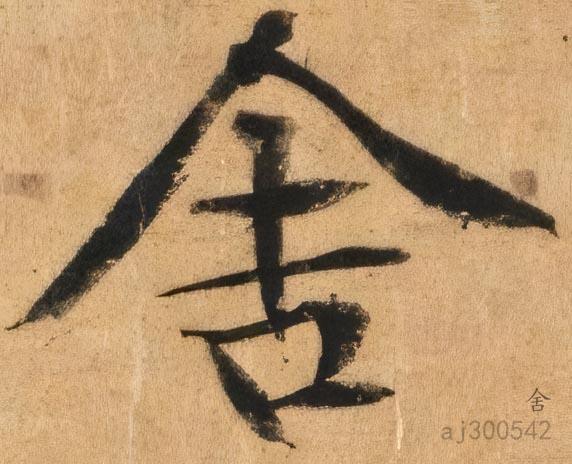 舍
舍
aj300542